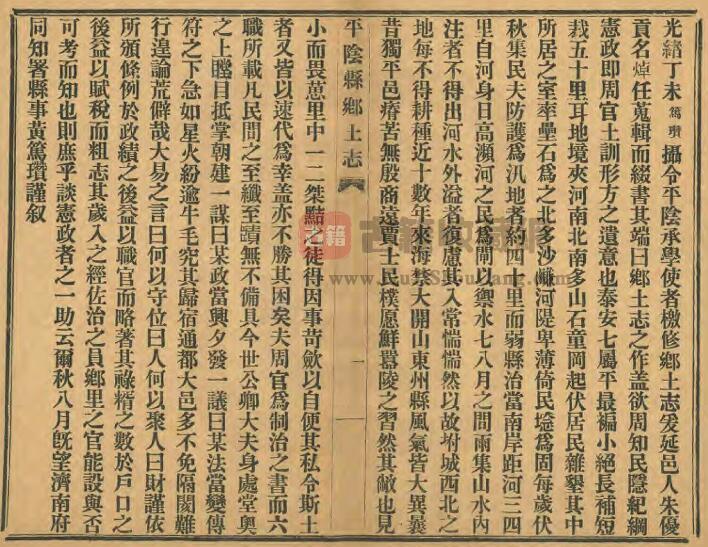 光緒丁未篤瓚攝令平陰承學使者檄修鄉土志爰延邑人朱優
貢名焯任蒐輯而綴書其端曰鄉土志之作蓋欲周知民隱紀綱
憲政即周官土訓形方之遺意也泰安七屬平最褊小絕長補短
栽五十里耳地境夾河南北南多山石童岡起伏居民雜墾其中
所居之室率壘石為之北多沙礫河隄卑薄倚民埝為固每歲伏
秋集民夫防護為汛地者約四十里而弱縣治當南岸距河三四
里自河身日高瀕河之民為閘以禦水七八月之間雨集山水內
注者不得出河水外溢者復慮其入常惴惴然以故坿城西北之
地每不得耕種近十數年來海禁大開山東州縣風氣皆大異曩
昔獨平邑瘠苦無殷商遠賈士民樸愿鮮囂陵之習然其敝也見
平陰縣鄉土志
一
小而畏葸里中一二桀黠之徒得因事苛斂以自便其私令斯土
者又皆以速代為幸蓋亦不勝其困矣夫周官為制治之書而六
職所載凡民間之至纖至賾無不備具今世公卿大夫身處堂奧
之上瞠目抵掌朝建一謀曰某政當興夕發一議曰某法當變傳
符之下急如星火紛逾牛毛究其歸宿通都大邑多不免隔閡難
行遑論荒僻哉大易之言曰何以守位曰人何以聚人曰財謹依
所頒條例於政績之後益以職官而略著其祿糈之數於戶口之
後益以賦稅而粗志其歲入之經佐治之員鄉里之官能設與否
可考而知也則庶乎談憲政者之一助云爾秋八月旣望濟南府
同知署縣事黃篤瓚謹叙